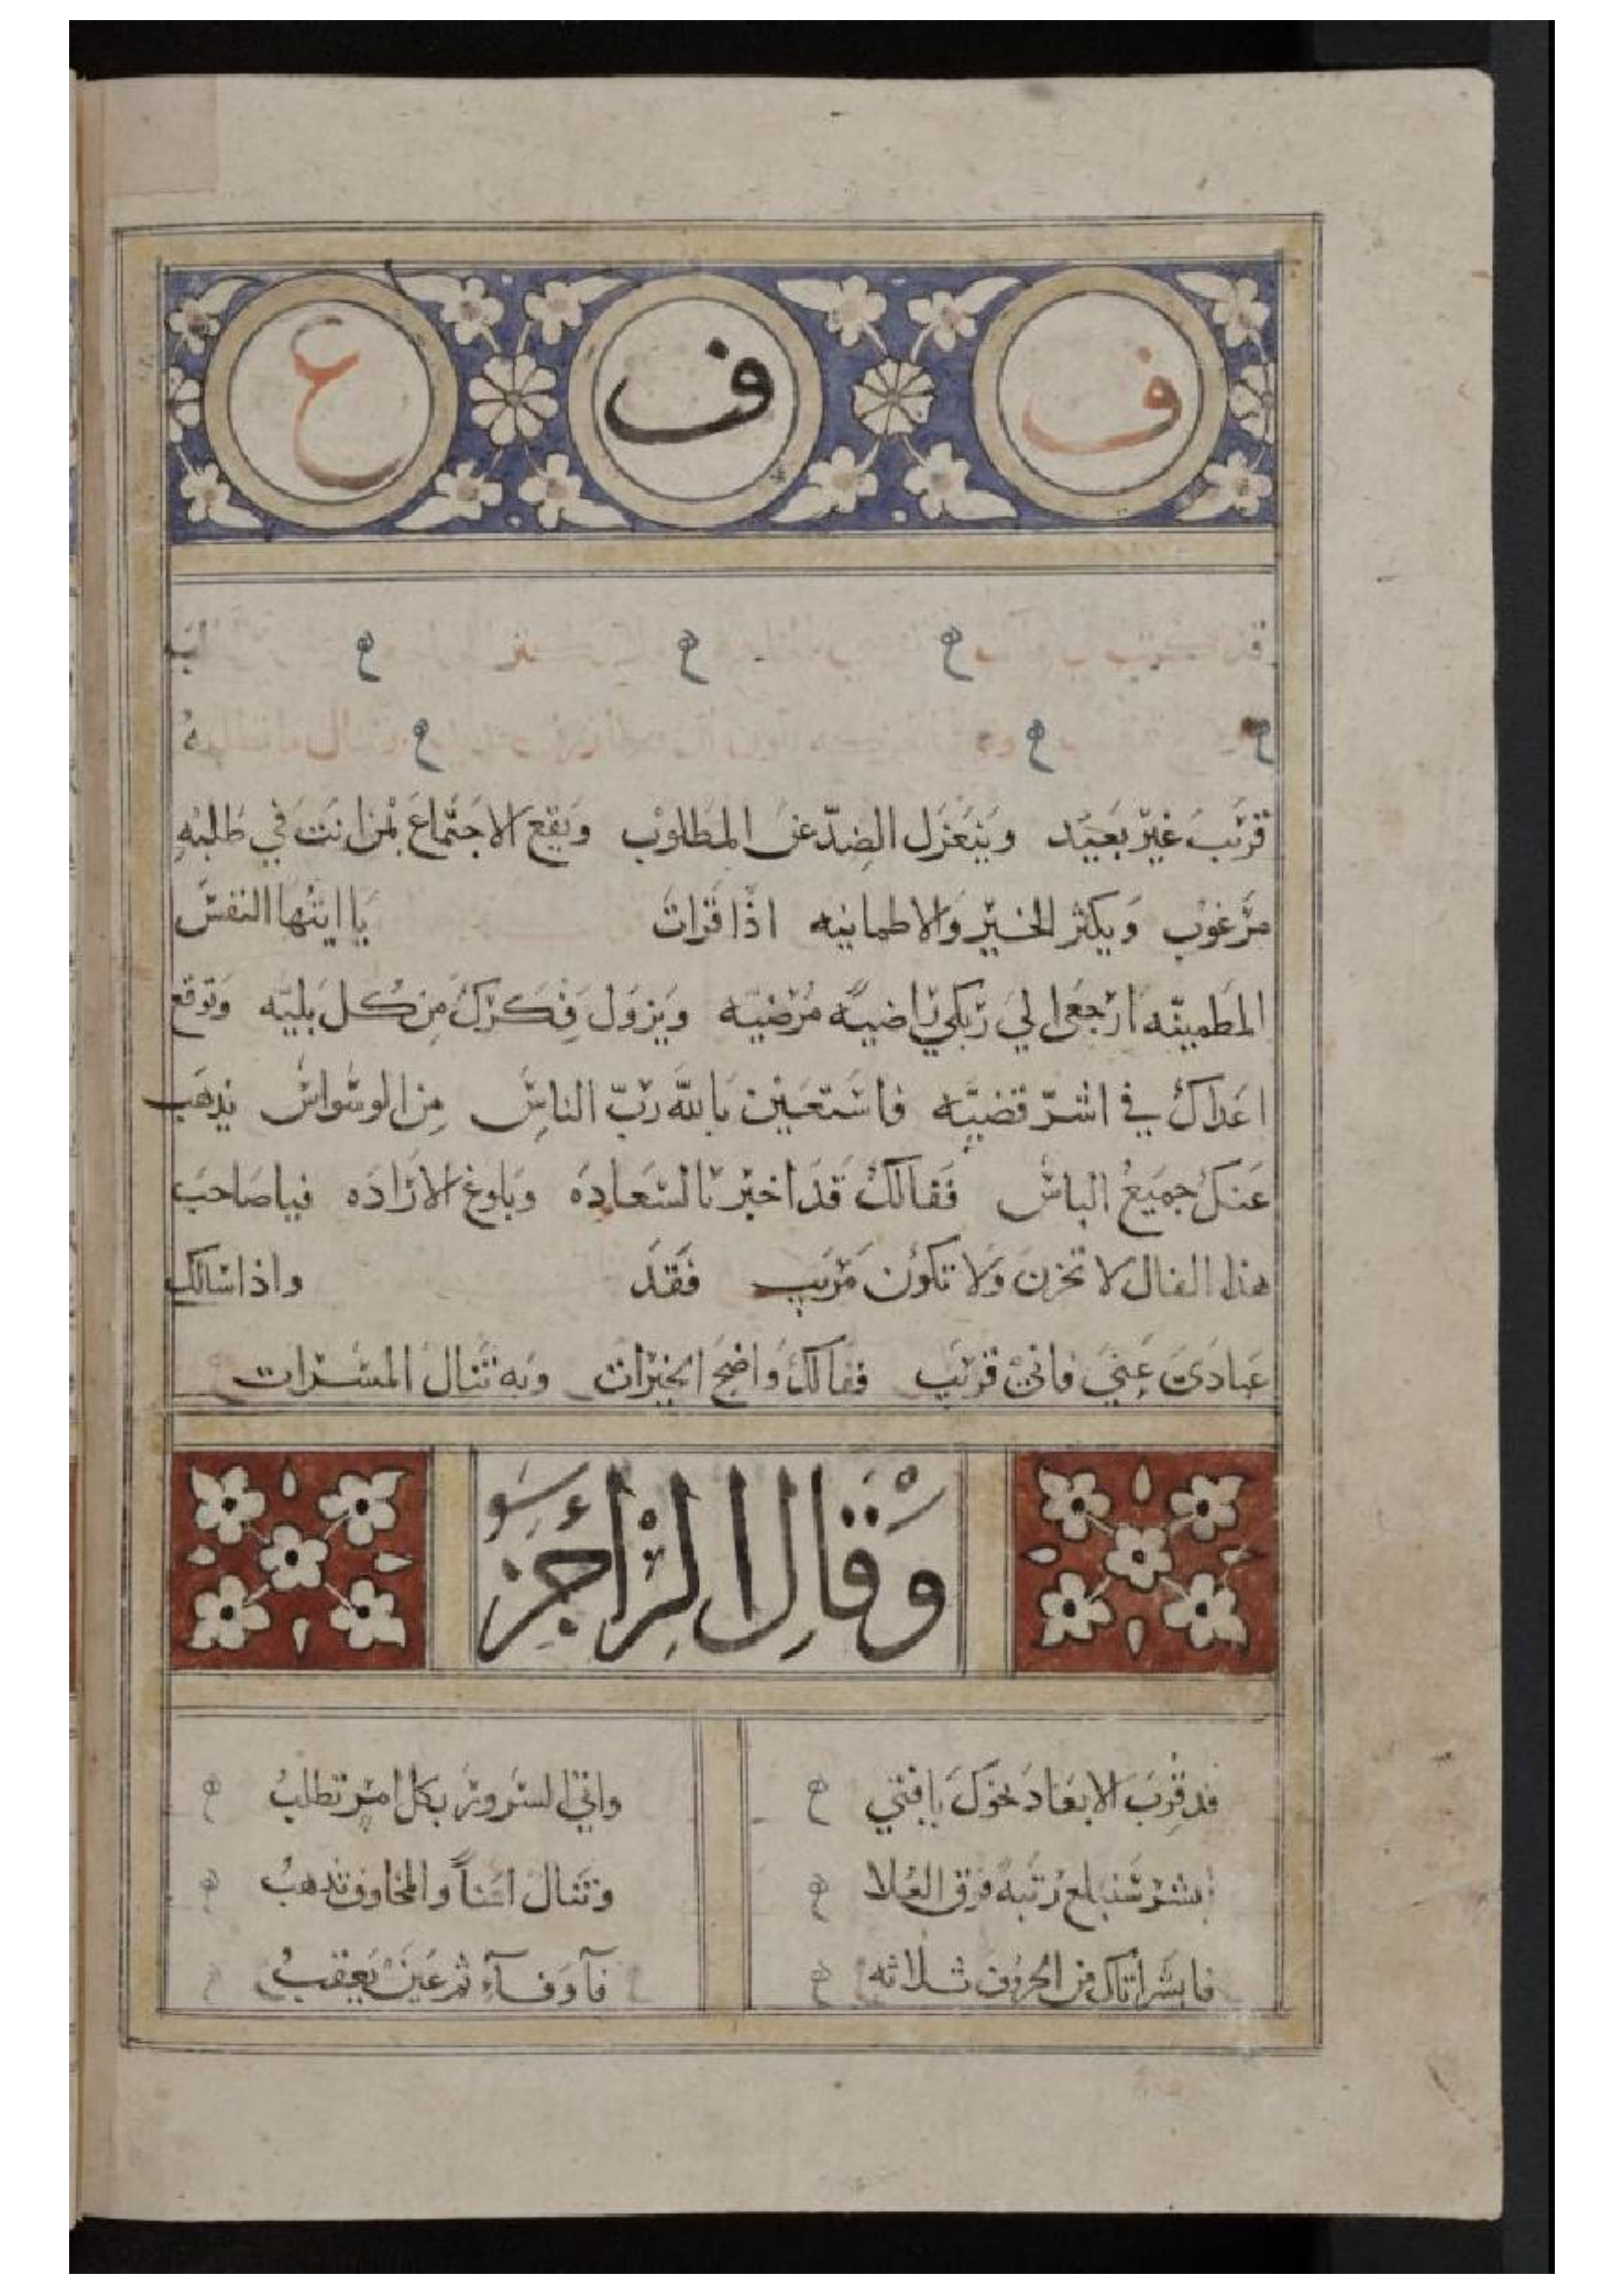 ف ف ع
قريب غير بعيد وينعزل الضد عن المطلوب ويقع الاجتماع بمن انت في طلبه
مرغوب ويكثر الخير والاطمانيه اذا قرات يا ايتها النفس
المطمينه ارجعي الي ربكي راضيه مرضيه ويزول فكرك من كل بليه وتوقع
اعداك في اشر قضيه فاستعين بالله رب الناس من الوسواس يذهب
عنك جميع الباس ففالك قد اخبر بالسعاده وبلوغ الاراده فيا صاحب
هذا الفال لا تحزن ولا تكون مريب فقد واذا سالك
عبادي عني فاني قريب ففالك واضح الخيرات وبه تنال المسرات
وقال الراجز
قد قرب الابعاد نحوك يا فتي واتي السرور بكل امر تطلب
ابشر ستبلغ رتبة فوق العلا وتنال امنا والمخاوف تذهب
فابشر اتاك من الحروف ثلاثه فآ وفآء ثم عين يعقب